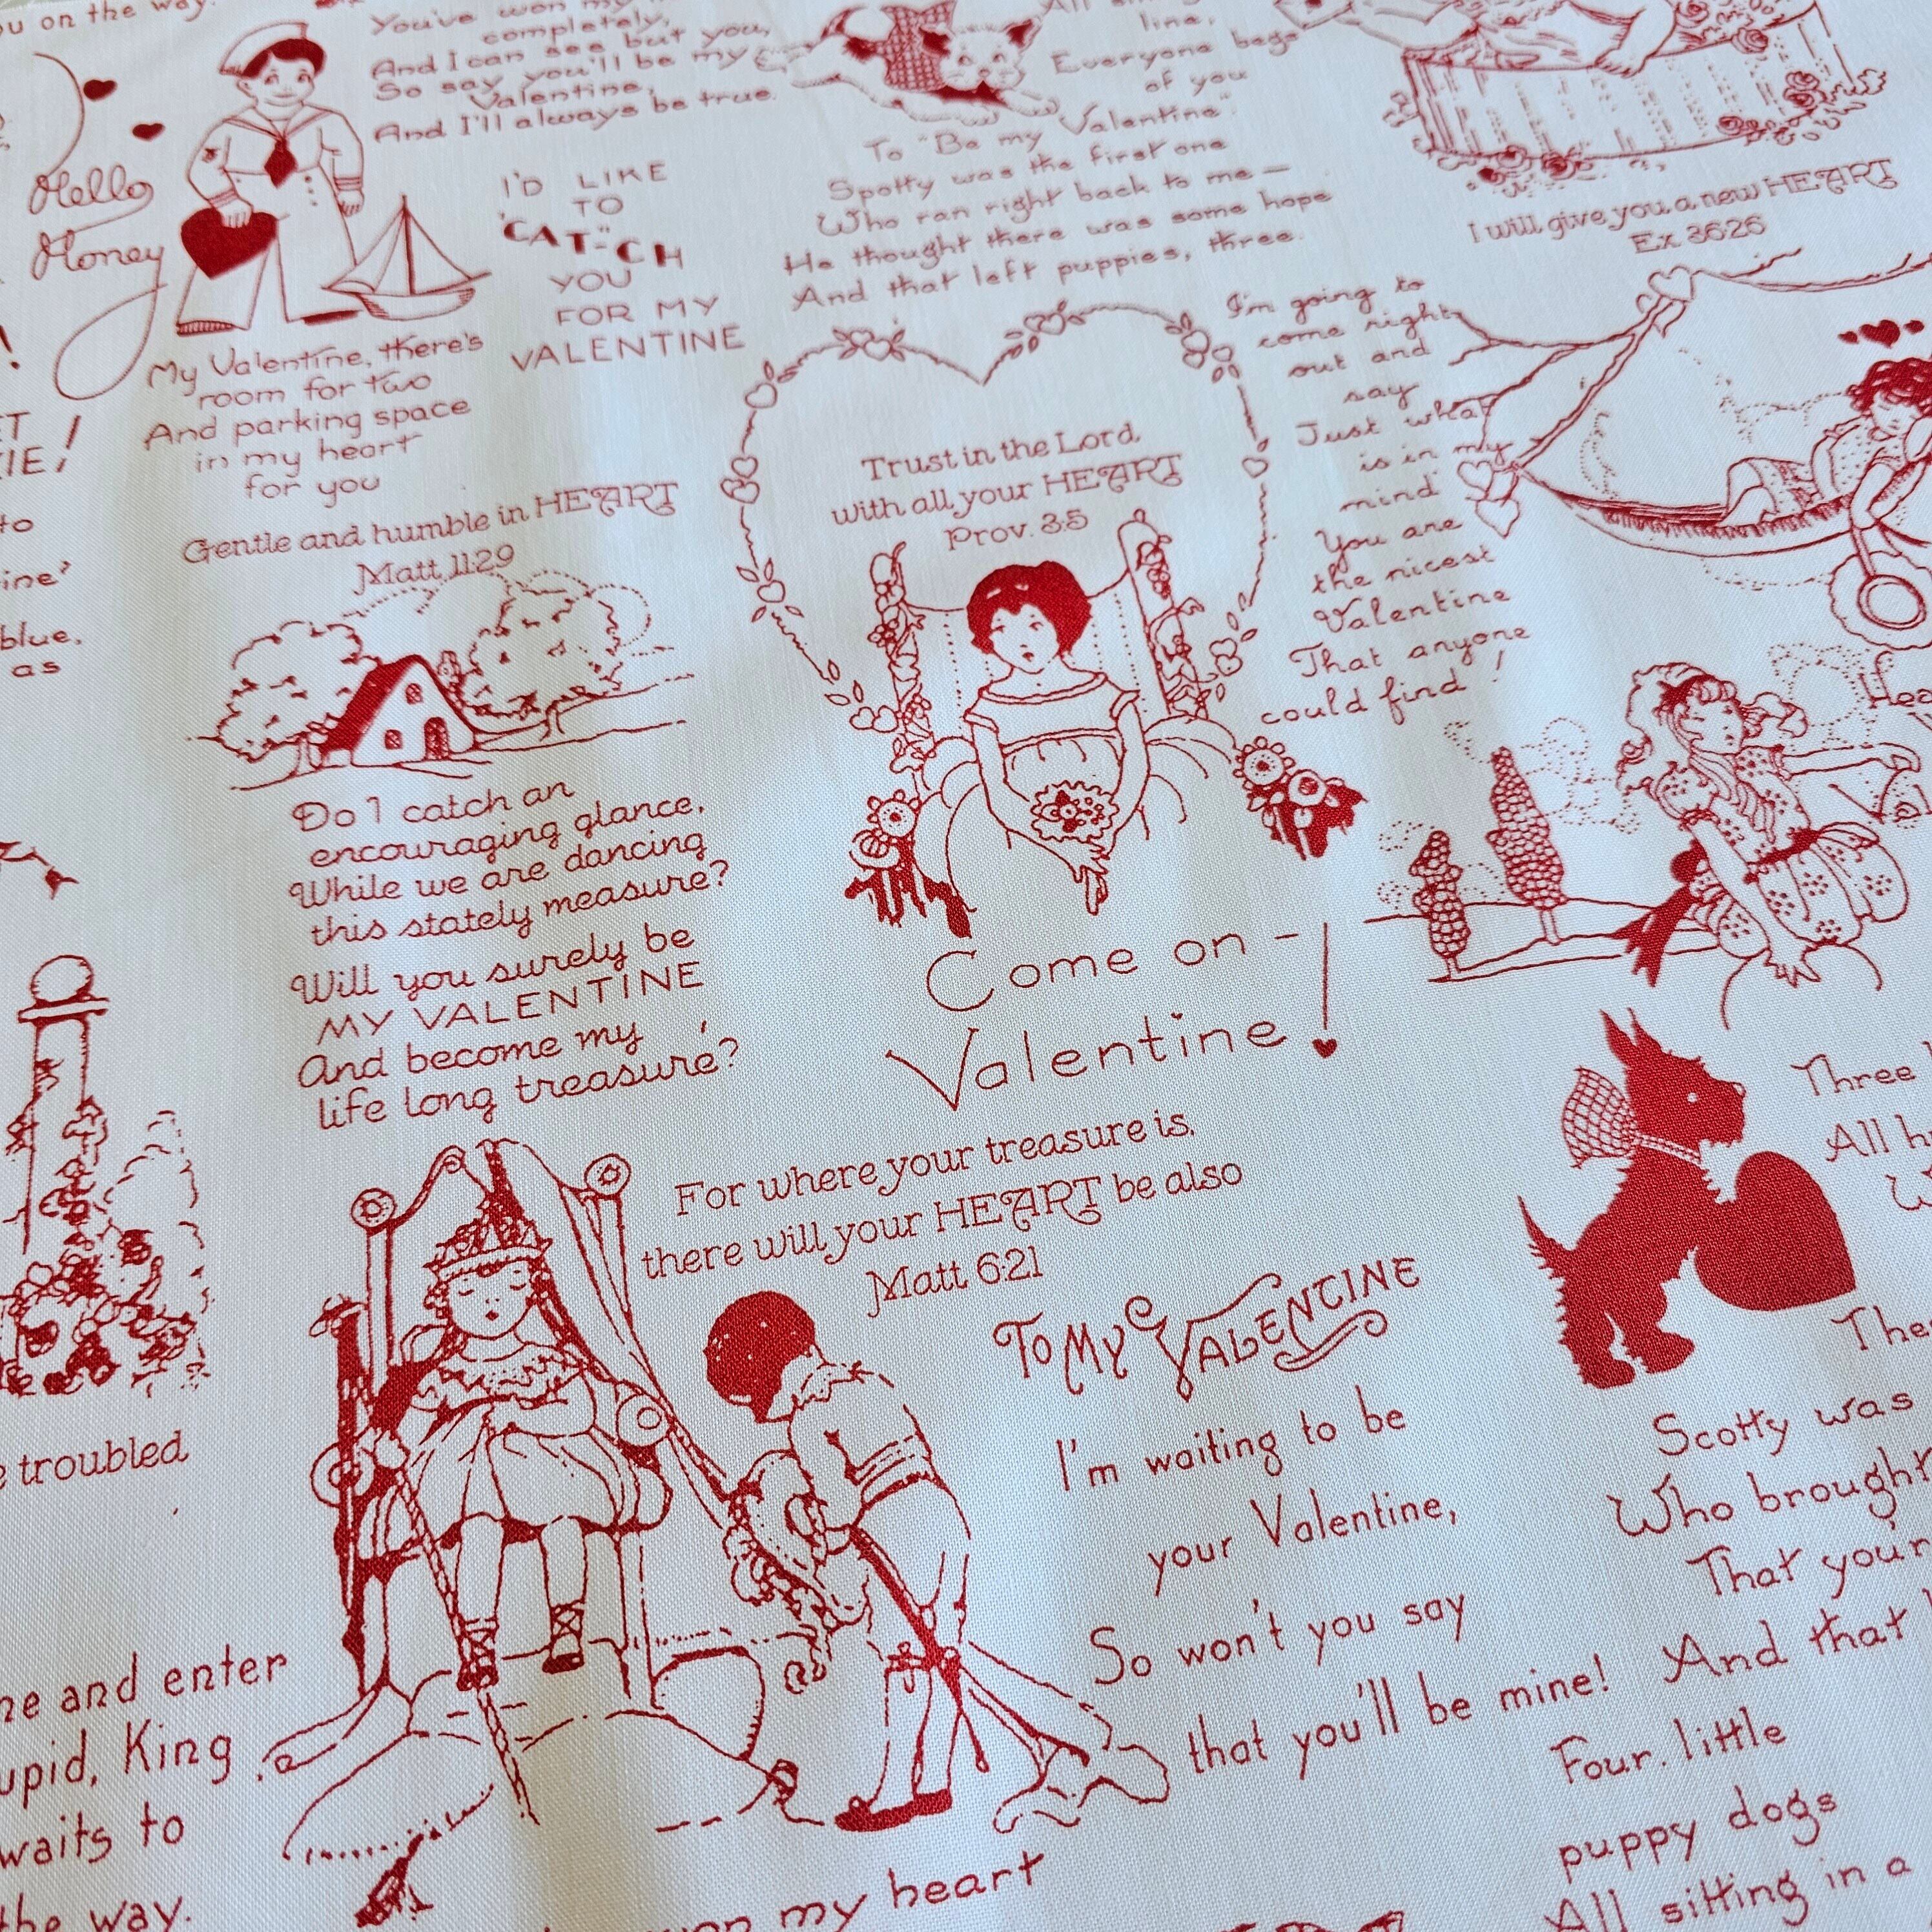 ou on the way.
Hello
Honey
You've won my
completely,
And I can see but you,
So say you'll be my
Valentine,
And I'll always be true.
I'D LIKE
TO
"CAT-CH"
YOU
FOR MY
VALENTINE
line,
Everyone begs
of you
To "Be my Valentine".
Spotty was the first one
Who ran right back to me —
He thought there was some hope
And that left puppies, three.
I will give you a new HEART
Ex 36:26
My Valentine, there's
room for two
And parking space
in my heart
for you
Gentle and humble in HEART
Matt 11:29
Trust in the Lord,
with all your HEART
Prov. 3:5
I'm going to
come right
out and
say
Just what
is in my
mind
You are
the nicest
Valentine
That anyone
could find!
to
blue.
as
Do I catch an
encouraging glance,
While we are dancing
this stately measure?
Will you surely be
MY VALENTINE
And become my
life long treasure?
Come on -
Valentine!
For where your treasure is,
there will your HEART be also
Matt 6:21
TO MY VALENTINE
I'm waiting to be
your Valentine,
So won't you say
that you'll be mine!
Three
All
troubled
Scotty was
Who brought
That you're
And that
Four little
puppy dogs
All sitting in a
and enter
upid, King
waits to
the way.
my heart